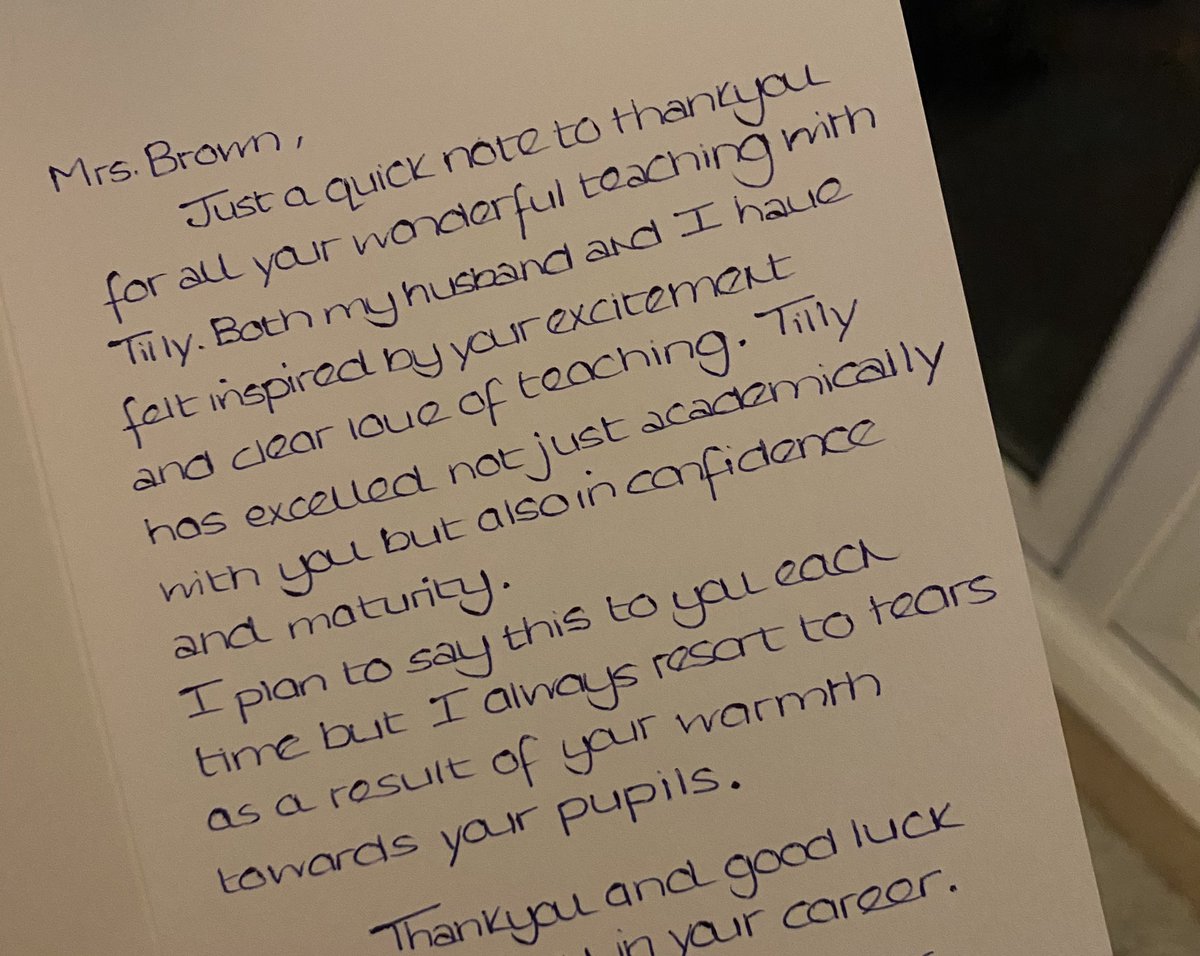 Mrs. Brown,
Just a quick note to thankyou
for all your wonderful teaching with
Tilly. Both my husband and I have
felt inspired by your excitement
and clear love of teaching. Tilly
has excelled not just academically
with you but also in confidence
and maturity.
I plan to say this to you each
time but I always resort to tears
as a result of your warmth
towards your pupils.
Thankyou and good luck
in your career.